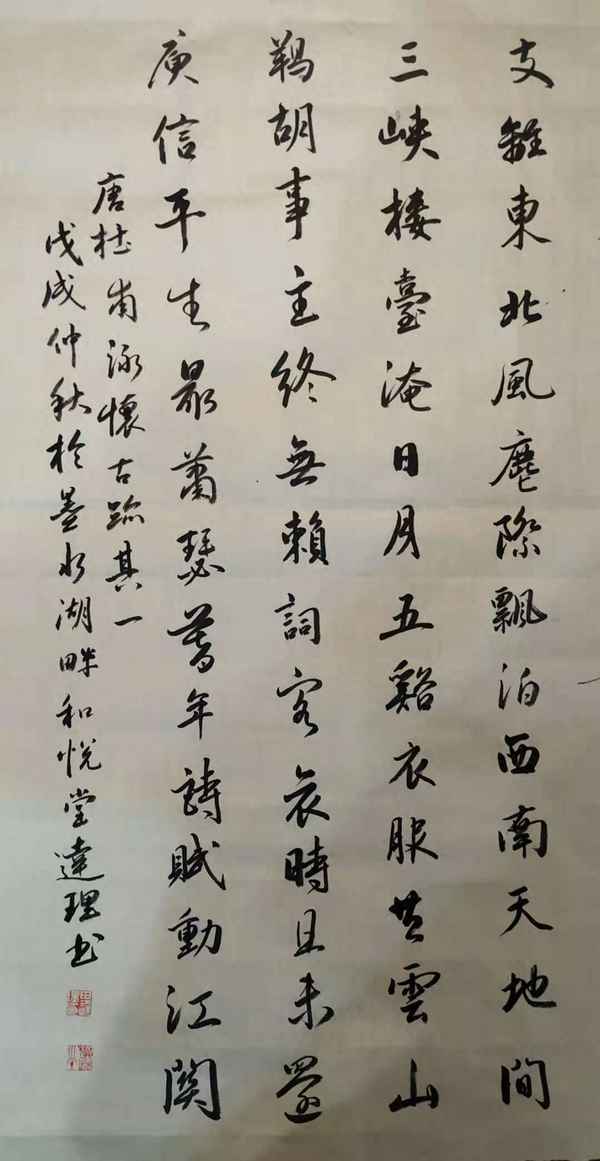 支離東北風塵際飄泊西南天地間
三峽樓臺淹日月五谿衣服共雲山
羯胡事主終無賴詞客哀時且未還
庾信平生最蕭瑟暮年詩賦動江關
唐杜甫詠懷古跡其一
戊戌仲秋於墨水湖畔和悅堂達理书